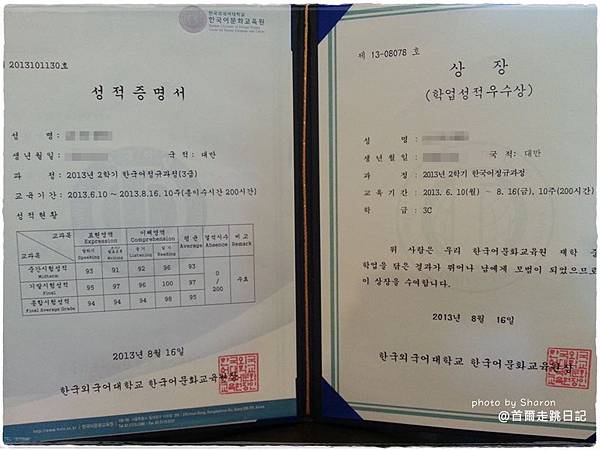 한국외국어대학교
한국어문화교육원
2013101130호
성적증명서
성 명 :
생년월일 : 국 적 : 대만
과 정 : 2013년 2학기 한국어정규과정(3급)
교육기간 : 2013.6.10 ~ 2013.8.16, 10주(총이수시간 200시간)
성적현황
교과목
교과목
표현영역
Expression
이해영역
Comprehension
평 균
Average
결석시수
Absence
비 고
Remark
말하기
Speaking
쓰기
Writing
듣기
Listening
읽기
Reading
중간시험성적
Midterm
93 91 92 96 93
기말시험성적
Final
95 97 96 100 97
종합시험성적
Final Average Grade
94 94 94 98 95
0
/
200
수료
2013년 8월 16일
한국외국어대학교 한국어문화교육원장
제 13-08078 호
상 장
(학업성적우수상)
성 명 :
생년월일 : 국 적 : 대만
과 정 : 2013년 2학기 한국어정규과정
교육기간 : 2013. 6. 10(월) ~ 8. 16(금), 10주(200시간)
학 급 : 3C
위 사람은 우리 한국어문화교육원 재학 중
학업을 닦은 결과가 뛰어나 남에게 모범이 되었으므로
이 상장을 수여합니다.
2013년 8월 16일
한국외국어대학교 한국어문화교육원장
photo by Sharon
@首爾走跳日記